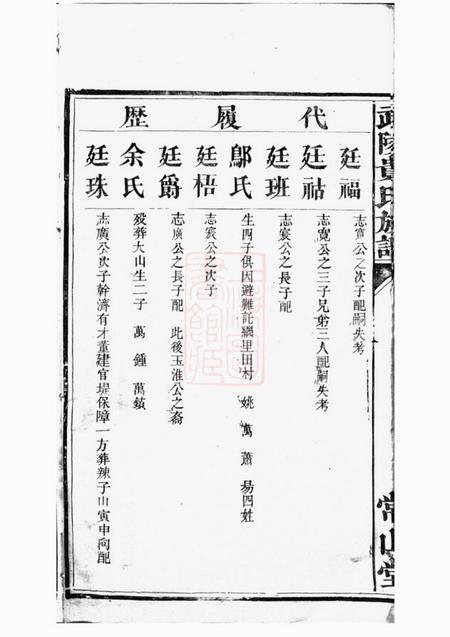 代履歷
廷福 志寬公之次子配嗣失考
廷祜 志寬公之三子兄弟三人配嗣失考
廷班 志宸公之長子配
鄔氏 生四子俱因避難託綱里田村 姚 萬 蕭 易四姓
廷梧 志宸公之次子
廷爵 志廣公之長子配 此後玉淮公之裔
余氏 歿葬大山生二子 萬鍾 萬鎮
廷珠 志廣公次子幹濟有才董建官堤保障一方葬辣子山寅申向配
武陵貴氏族譜
常山堂